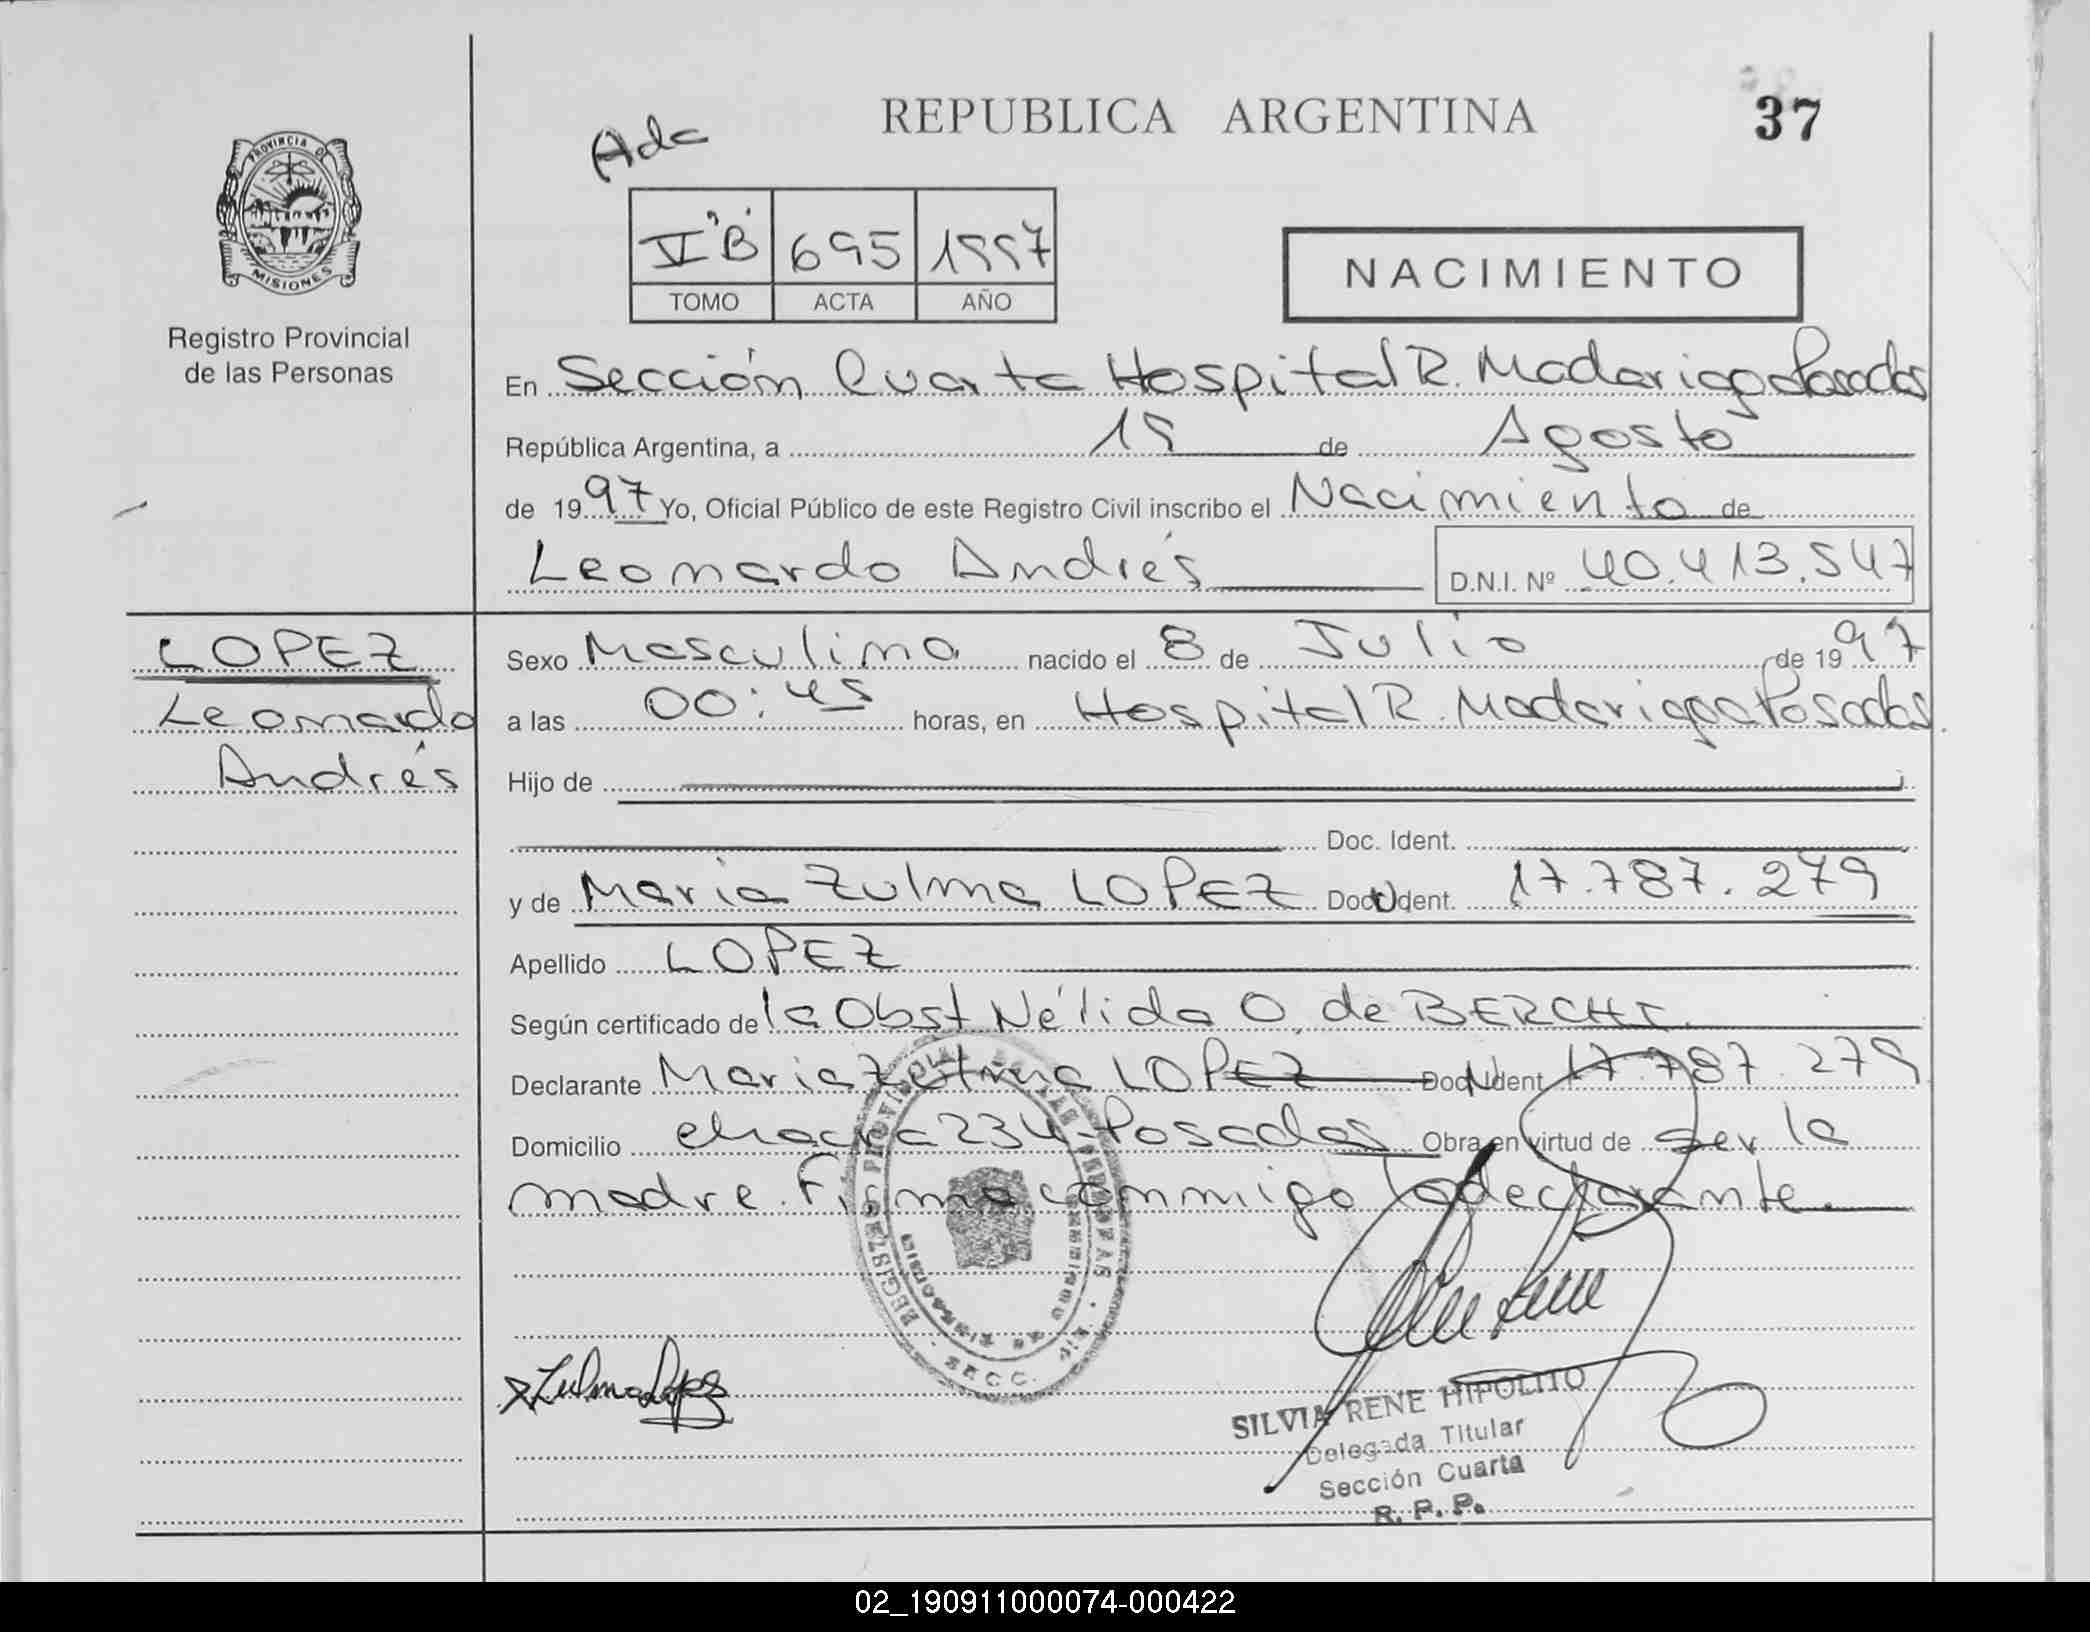 REPUBLICA ARGENTINA
37
Ada
PROVINCIA DE
MISIONES
Registro Provincial
de las Personas
V "B" 695 1997
TOMO ACTA AÑO
NACIMIENTO
En Sección Cuarta Hospital R. Madariaga Posadas
República Argentina, a 19 de Agosto
de 1997 Yo, Oficial Público de este Registro Civil inscribo el Nacimiento de
Leonardo Andrés D.N.I. Nº 40.413.547
LOPEZ
Leonardo
Andrés
Sexo Masculino nacido el 8 de Julio de 1997
a las 00:45 horas, en Hospital R. Madariaga Posadas
Hijo de
Doc. Ident.
y de Maria Zulma LOPEZ Doc. Ident. 17.787.279
Apellido LOPEZ
Según certificado de la Obst Nélida O. de BERCHI.
Declarante Maria Zulma LOPEZ Doc. Ident 17.787.279
Domicilio chacra 234-Posadas Obra en virtud de ser la
madre. Firma conmigo la declarante.
Zulma Lopez
REGISTRO PROVINCIAL DE LAS PERSONAS
SECC.
SILVIA RENE HIPOLITO
Delegada Titular
Sección Cuarta
R. P. P.
02_190911000074-000422